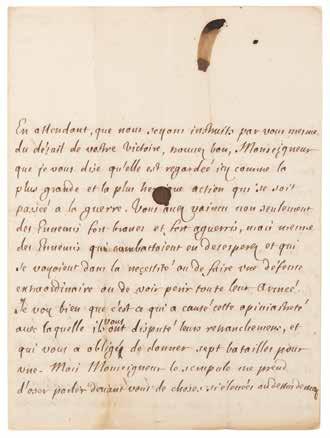 En attendant, que nous soyons instruits par vous mesme
du détail de vostre victoire, trouvez bon, Monseigneur
que je vous dise qu'elle est regardée icy comme la
plus grande et la plus heroique action qui se soit
passée à la guerre. Vous avez vaincu non seulement
des Ennemis fort braves et fort aguerris, mais mesme
des Ennemis qui combattoient en desesperez et qui
se voyoient dans la necessité ou de faire une defense
extraordinaire ou de voir perir toute leur Armée.
Je voy bien que c'est ce qui a causé cette opiniastreté
avec laquelle ils vous ont disputé leurs retranchemens, et
qui vous a obligé de donner sept batailles pour
une. Mais Monseigneur le scrupule me prend
d'oser parler devant vous de choses si élevées au dessus de moy